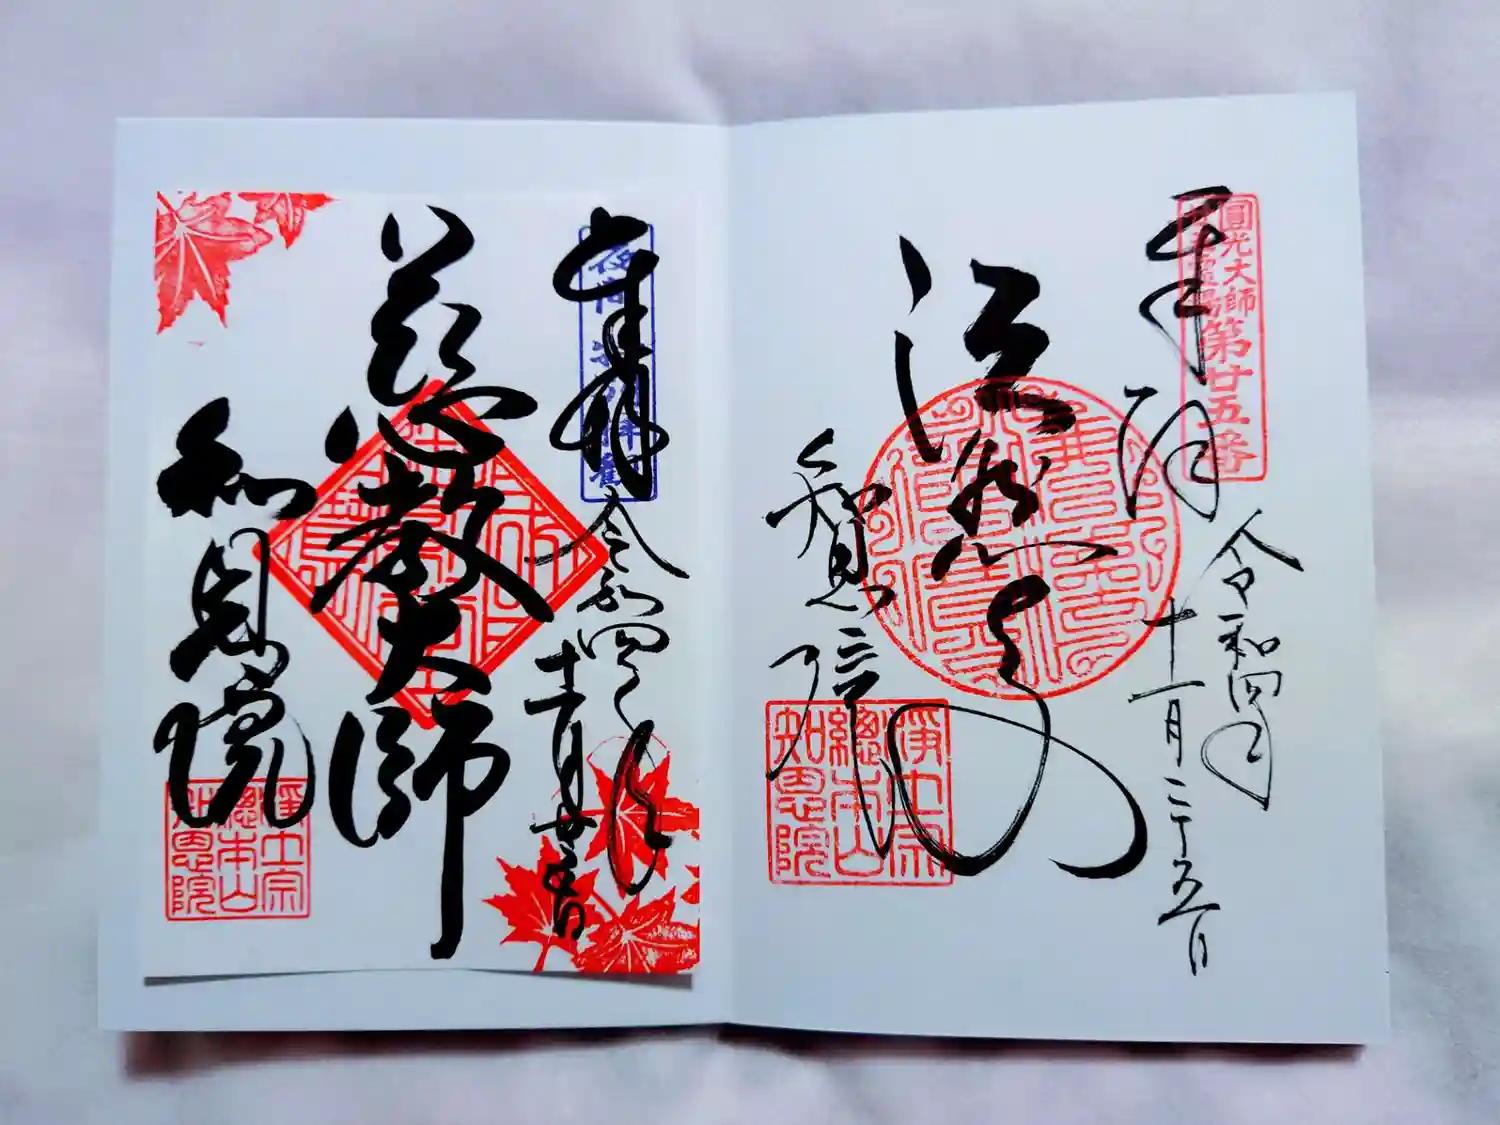 圓光大師
第廿五番
奉拝
令和四年
十一月二十五日
法然上人
智恩院
浄土宗
總本山
知恩院
奉拝
令和四年
十一月廿五日
慈教大師
知恩院
浄土宗
總本山
知恩院